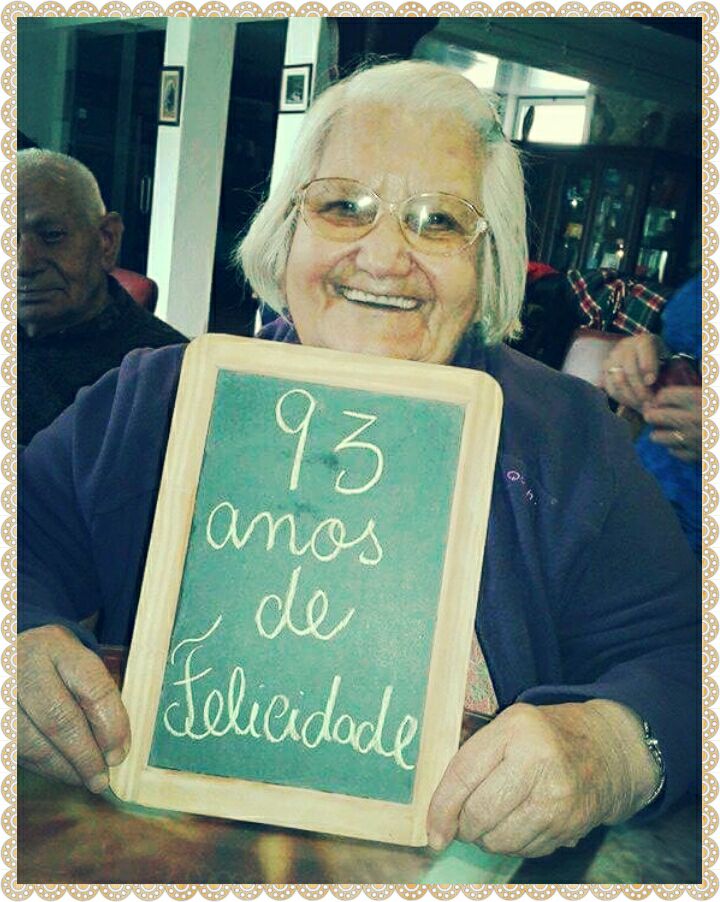 93
anos
de
Felicidade